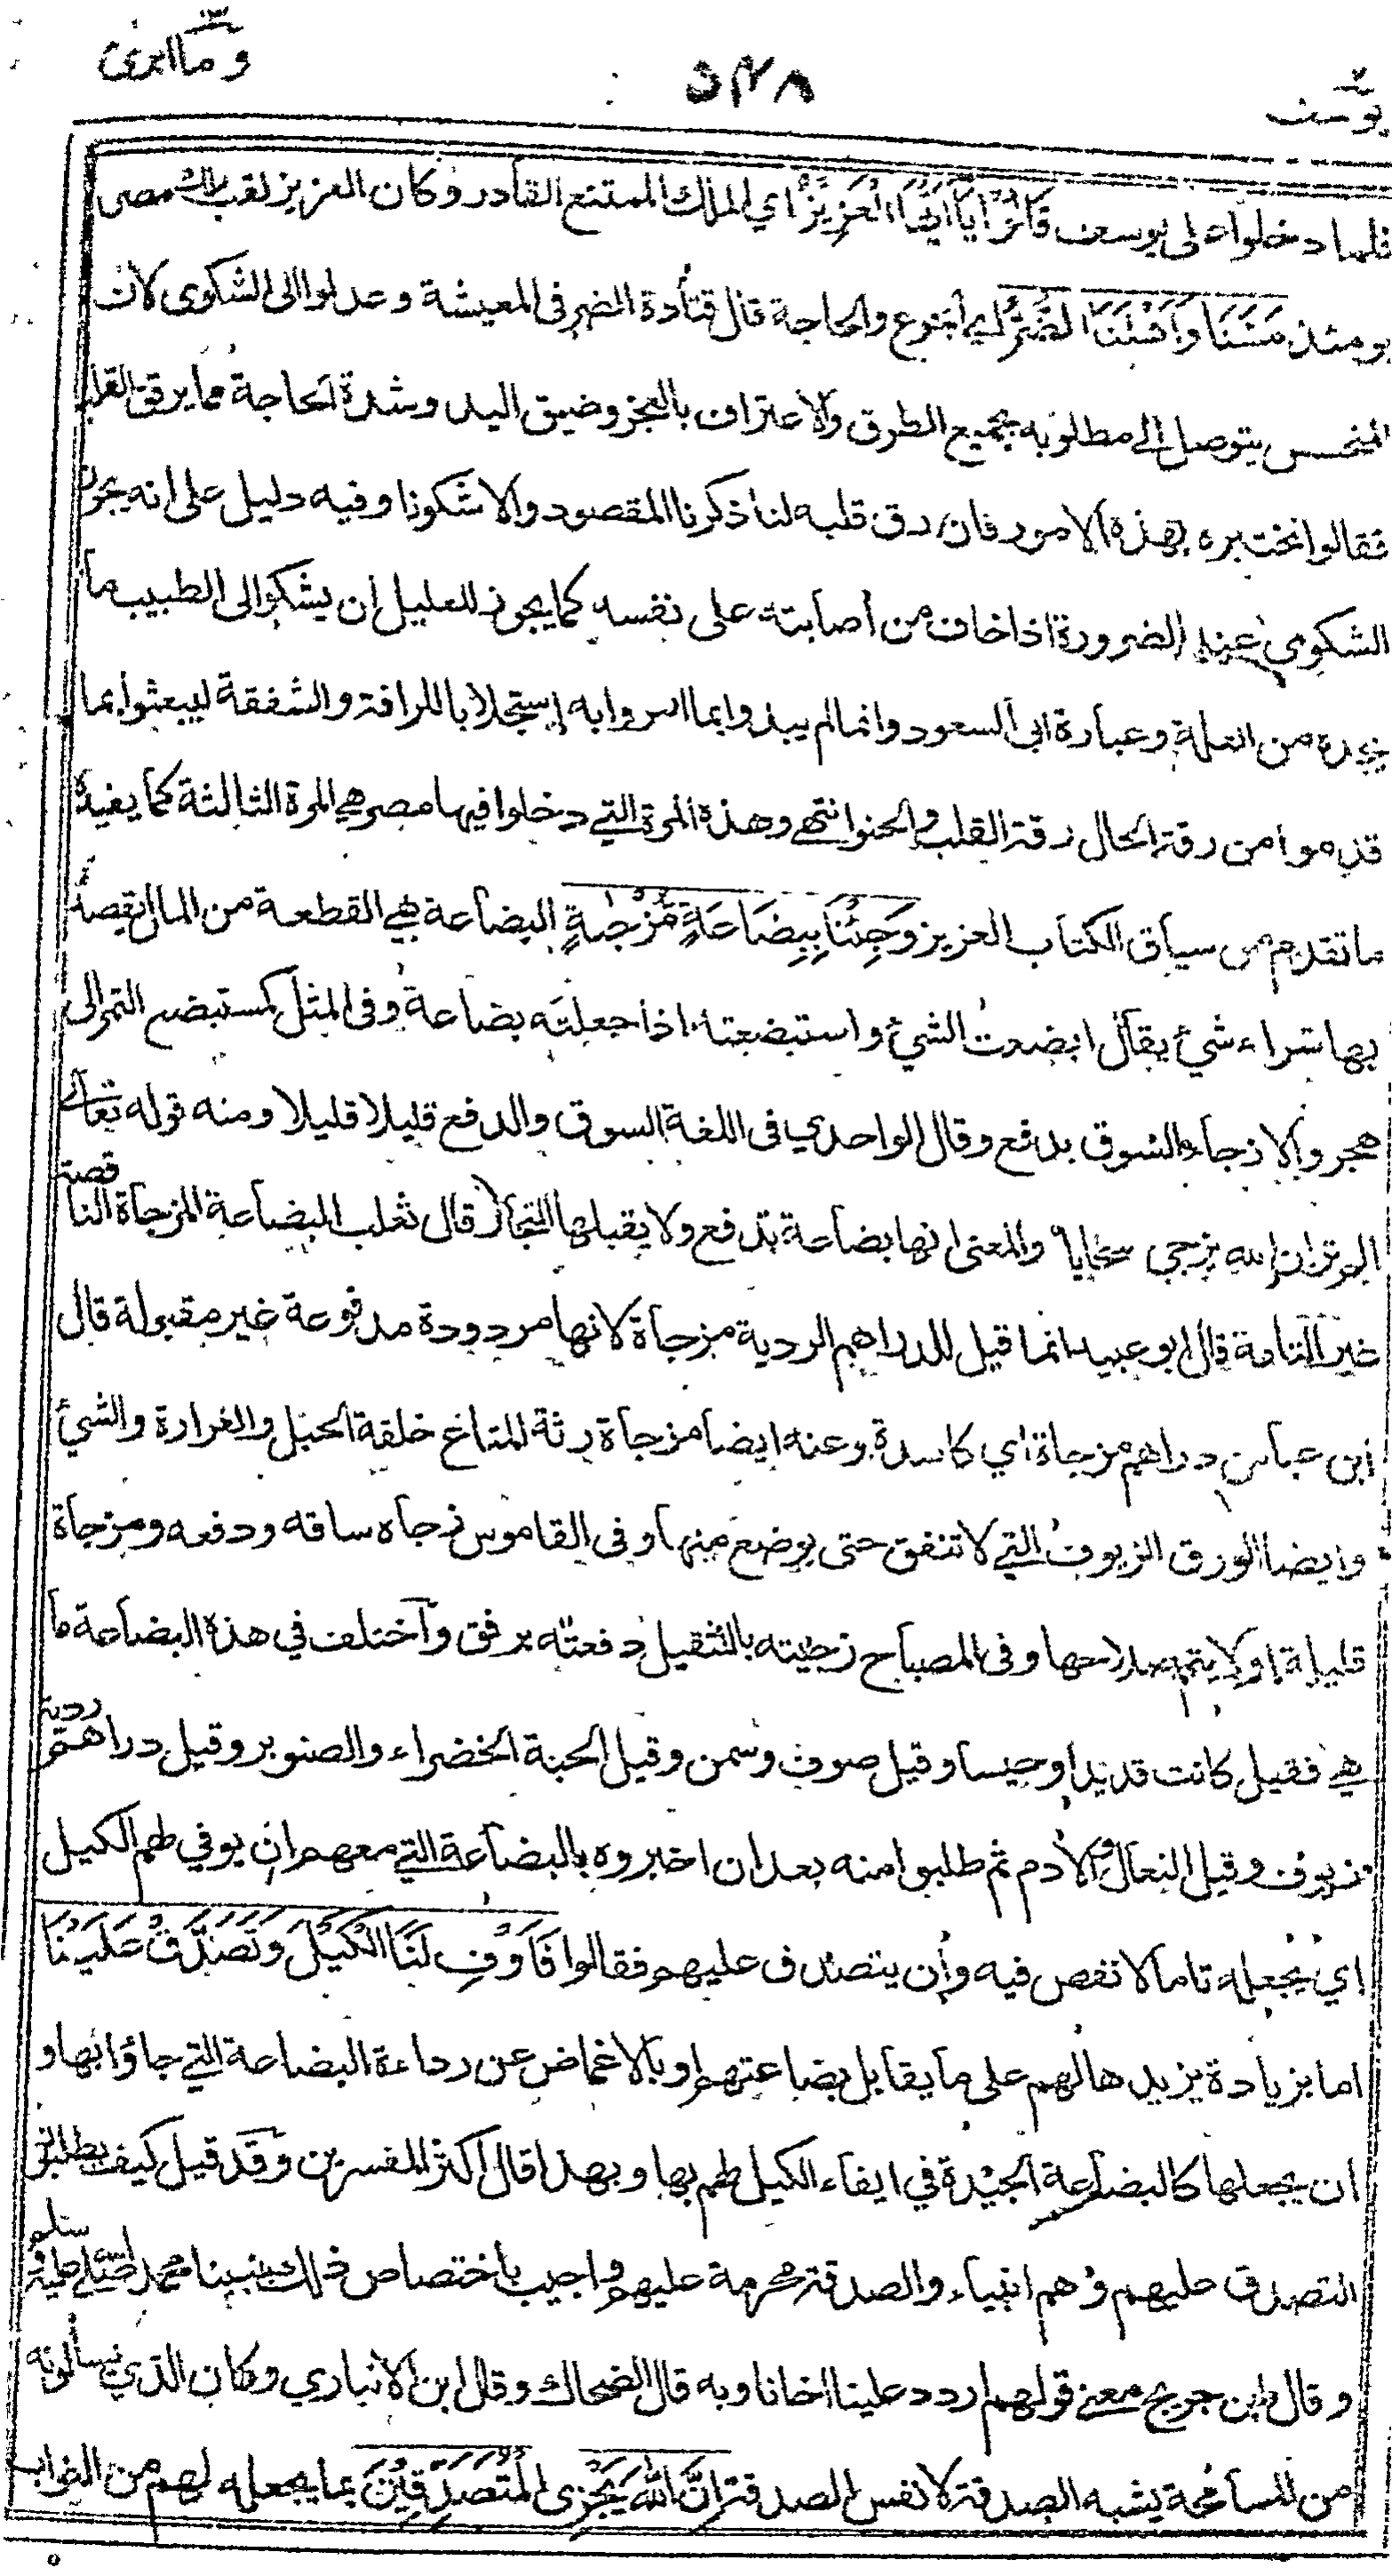 يوسف ٥٣٨ وما ابرئ
فلما دخلوا على يوسف قَالُوْا يَآ اَيُّهَا الْعَزِيْزُ أي الملك الممتنع القادر وكان العزيز لقب ملك مصر
يومئذ مَسَّنَا وَاَهْلَنَا الضُّرُّ أي الجوع والحاجة قال قتادة الضر في المعيشة وعدلوا الى الشكوى لان
المتحسس يتوصل الى مطلوبه بجميع الطرق والاعتراف بالعجز وضيق اليد وشدة الحاجة مما يرقق القلب
فقالوا نختبره بهذه الامور فان رق قلبه لنا ذكرنا المقصود والا شكونا وفيه دليل على انه يجوز
الشكوى عند الضرورة اذا خاف من أصابته على نفسه كما يجوز للعليل أن يشكو الى الطبيب ما
يجده من العلة وعبارة ابى السعود وانما لم يبدؤا بما امروا به استجلابا للرافة والشفقة ليبعثوا بما
قدموا من رقة الحال رقة القلب والحنو انتهى وهذه المرة التي دخلوا فيها مصر هي المرة الثالثة كما يفيده
ما تقدم من سياق الكتاب العزيز وَجِئْنَا بِبِضَاعَةٍ مُّزْجٰىةٍ البضاعة هي القطعة من المال يقصد
بها شراء شيء يقال ابضعت الشيء واستبضعته اذا جعلته بضاعة وفى المثل كمستبضع التمر الى
هجر والازجاء السوق بدفع وقال الواحدي في اللغة السوق والدفع قليلا قليلا ومنه قوله تعالى
الم تر ان الله يزجى سحابا والمعنى انها بضاعة تدفع ولا يقبلها التجار قال ثعلب البضاعة المزجاة الناقصة
غير التامة قال ابو عبيد انما قيل للدراهم الردية مزجاة لانها مردودة مدفوعة غير مقبولة قال
ابن عباس دراهم مزجاة أي كاسدة وعنه ايضا مزجاة رثة المتاع خلقة الحبل والغرارة والشيء
وايضا الورق الزيوف التي لا تنفق حتى يوضع منها وفى القاموس زجاه ساقه ودفعه ومزجاة
قليلة او لا يتم صلاحها وفى المصباح زجيته بالتثقيل دفعته برفق وآختلف في هذه البضاعة ما
هي فقيل كانت قديدا وحيسا وقيل صوف وسمن وقيل الحبة الخضراء والصنوبر وقيل دراهم ردية
زيوف وقيل النعال والأدم ثم طلبوا منه بعد ان اخبروه بالبضاعة التي معهم ان يوفي لهم الكيل
اي يجعله تاما لا نقص فيه وأن يتصدق عليهم فقالوا فَاَوْفِ لَنَا الْكَيْلَ وَتَصَدَّقْ عَلَيْنَا
اما بزيادة يزيدها لهم على ما يقابل بضاعتهم او بالاغماض عن رداءة البضاعة التي جاؤا بها و
ان يجعلها كالبضاعة الجيدة في ايفاء الكيل لهم بها وبهذا قال أكثر المفسرين وقد قيل كيف يطلبون
التصدق عليهم وهم انبياء والصدقة محرمة عليهم واجيب باختصاص ذلك بنبينا محمد صلى الله عليه وسلم
وقال ابن جريج معنى قولهم اردد علينا اخانا وبه قال الضحاك وقال ابن الانباري وكان الذي يسألونه
من المسامحة يشبه الصدقة لا نفس الصدقة اِنَّ اللهَ يَجْزِى الْمُتَصَدِّقِيْنَ بما يجعله لهم من الثواب